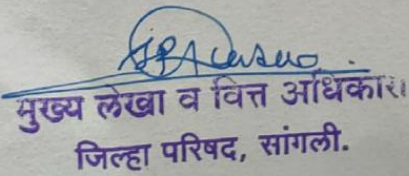 मुख्य लेखा व वित्त अधिकारी
जिल्हा परिषद, सांगली.